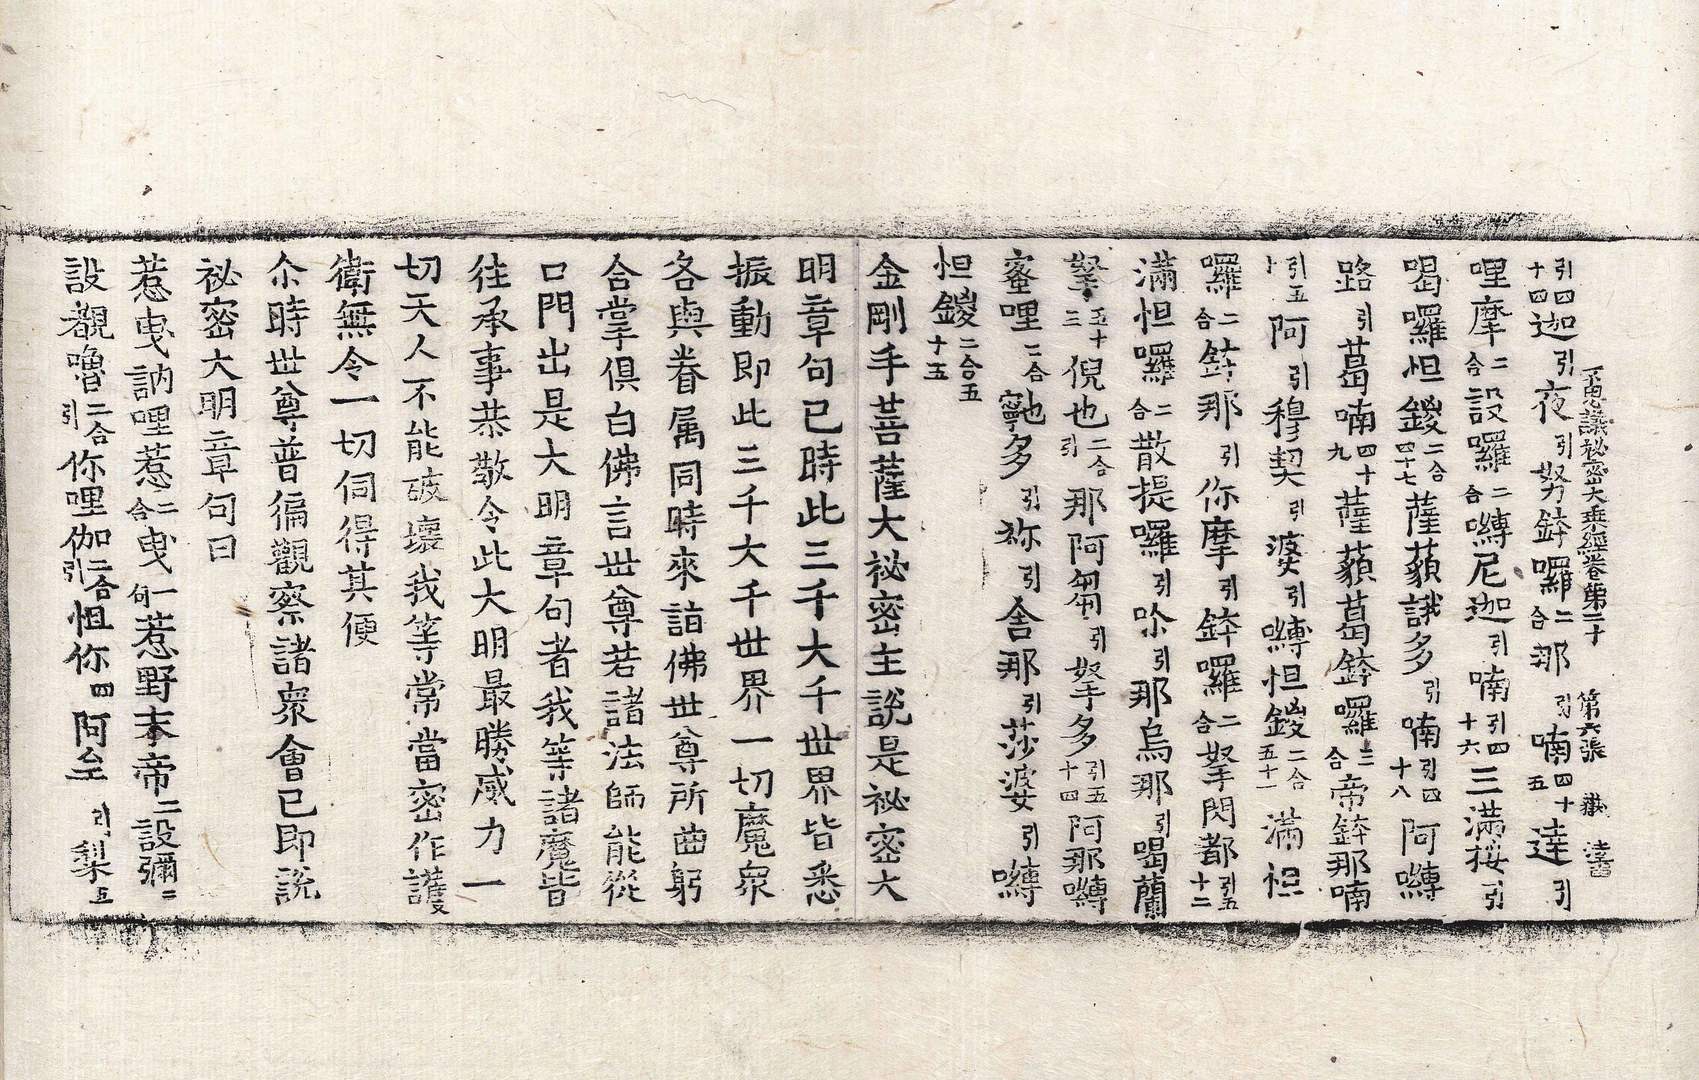 不思議祕密大乘經卷第二十 第六張
引四十四迦引夜引努鉢囉二合那引喃四十五達引
哩摩二合設囉二合嚩尼迦引喃引四十六三滿梭引
喝囉怛鍐二合四十七薩蘱誐多引喃引四十八阿嚩
路引葛喃四十九薩蘱葛鉢囉二合帝鉢那喃
引五十阿引穆契引婆引嚩怛鍐二合五十一滿怛
囉二合鉢那引你摩引鉢囉二合拏閃都引五十二
滿怛囉二合散提囉引唅引那烏那引喝蘭
拏五十三倪也二合引那阿芻引拏多引五十四阿那嚩
蜜哩二合也寧多引祢引舍那引莎婆引嚩
怛鍐二合五十五
金剛手菩薩大祕密主說是祕密大
明章句已時此三千大千世界皆悉
振動即此三千大千世界一切魔衆
各與眷属同時來詣佛世尊所曲躬
合掌俱白佛言世尊若諸法師能從
口門出是大明章句者我等諸魔皆
往承事恭敬令此大明最勝威力一
切天人不能破壞我等常當密作護
衛無令一切伺得其便
尒時世尊普徧觀察諸衆會已即說
祕密大明章句曰
惹曳訥哩惹二合曳一句惹野末帝二設彌二
設覩嚕二合引你哩伽二合引怛你四阿至引梨五